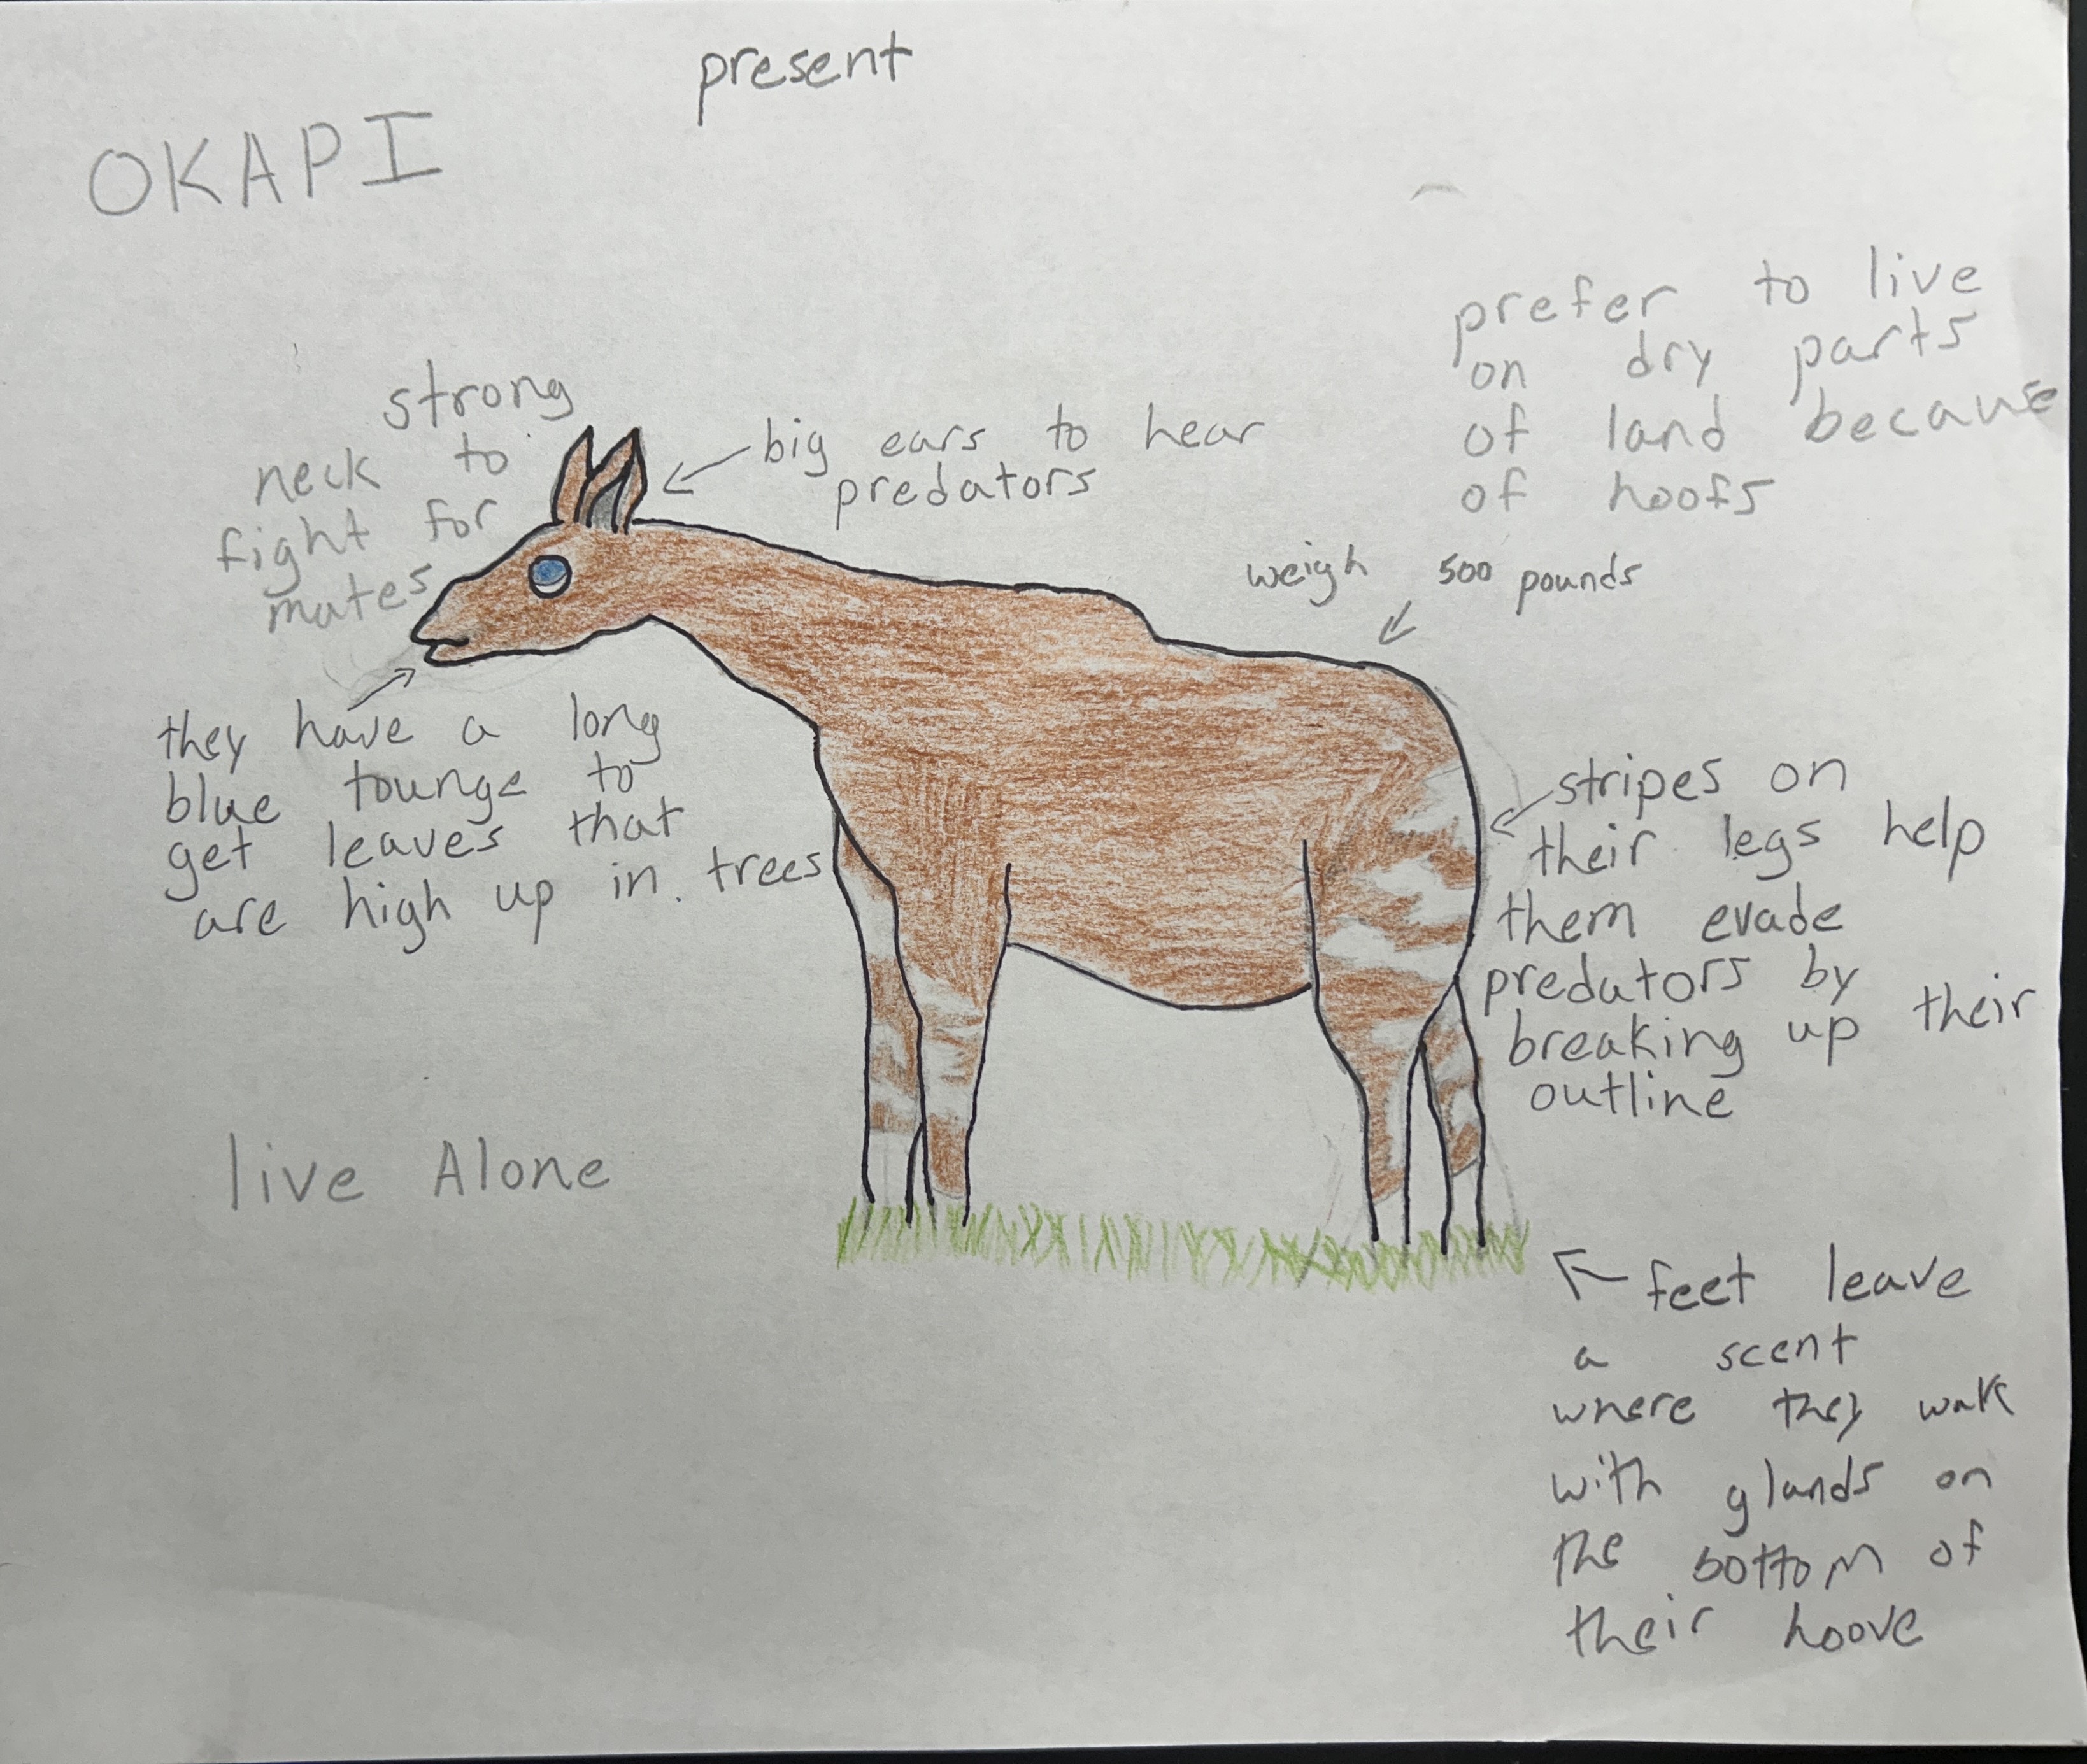 present
OKAPI
strong
neck to
fight for
mates
big ears to hear
predators
prefer to live
on dry parts
of land because
of hoofs
weigh 500 pounds
they have a long
blue tounge to
get leaves that
are high up in trees
stripes on
their legs help
them evade
predators by
breaking up their
outline
live Alone
feet leave
a scent
where they walk
with glands on
the bottom of
their hoove